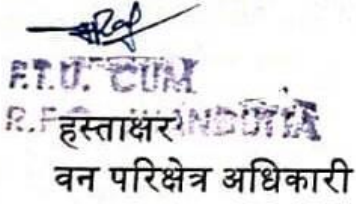 F.T.U. CUM
R.F.
हस्ताक्षर
वन परिक्षेत्र अधिकारी